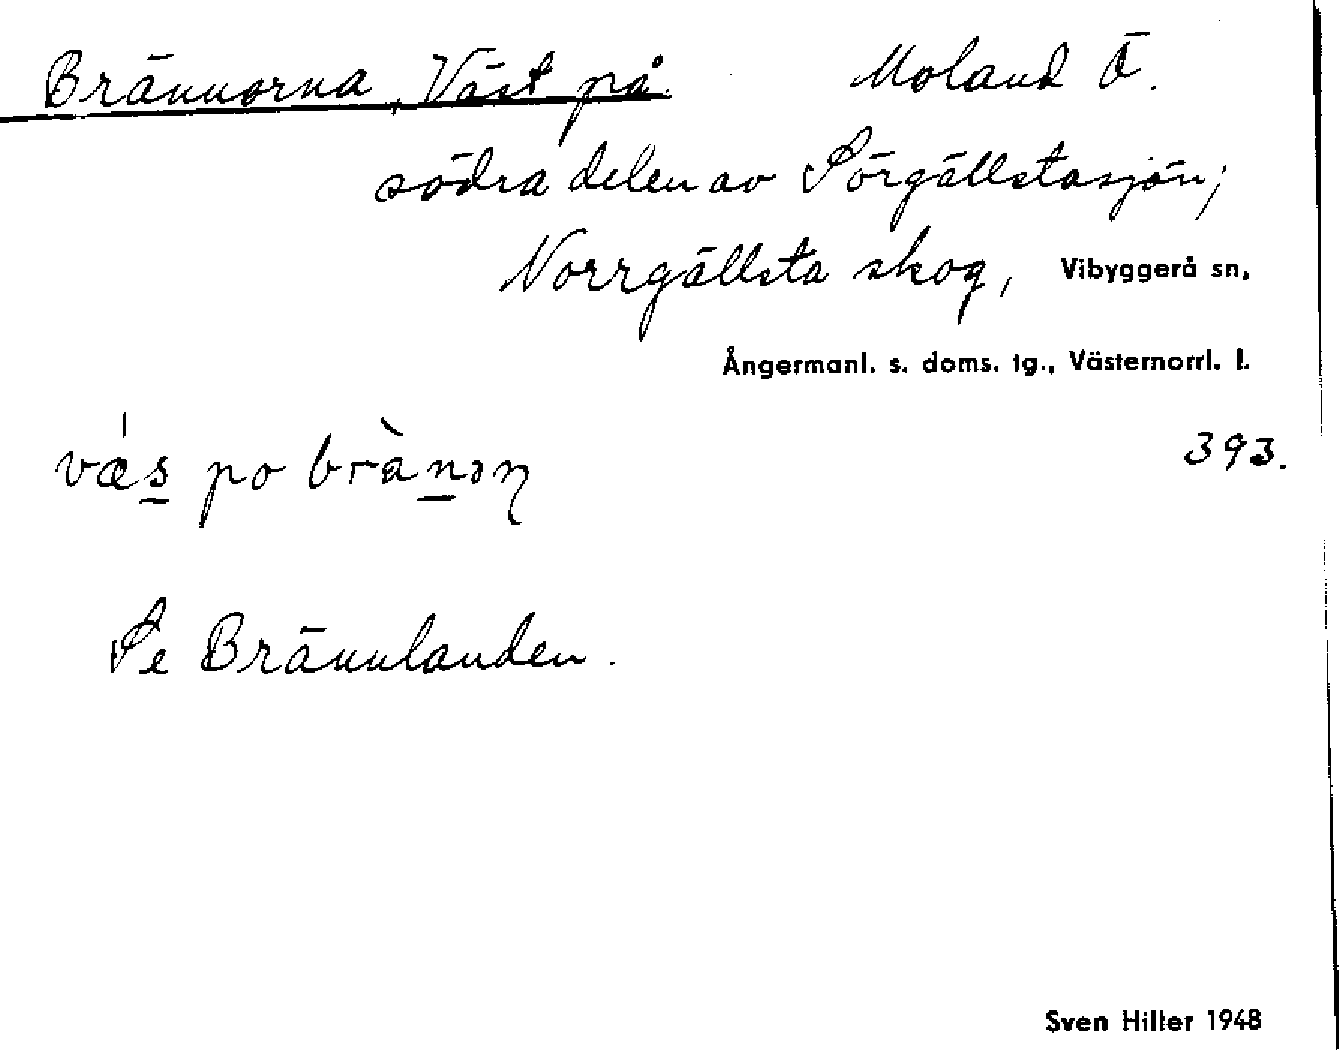 Brännorna, Väst på. Moland Ö.
södra delen av Sörgällstasjön;
Norrgällsta skog, Vibyggerå sn,
Ångermanl. s. doms. tg., Västernorrl. l.
393.
vǽs po brànɔɳ
Se Brännlanden.
Sven Hiller 1948